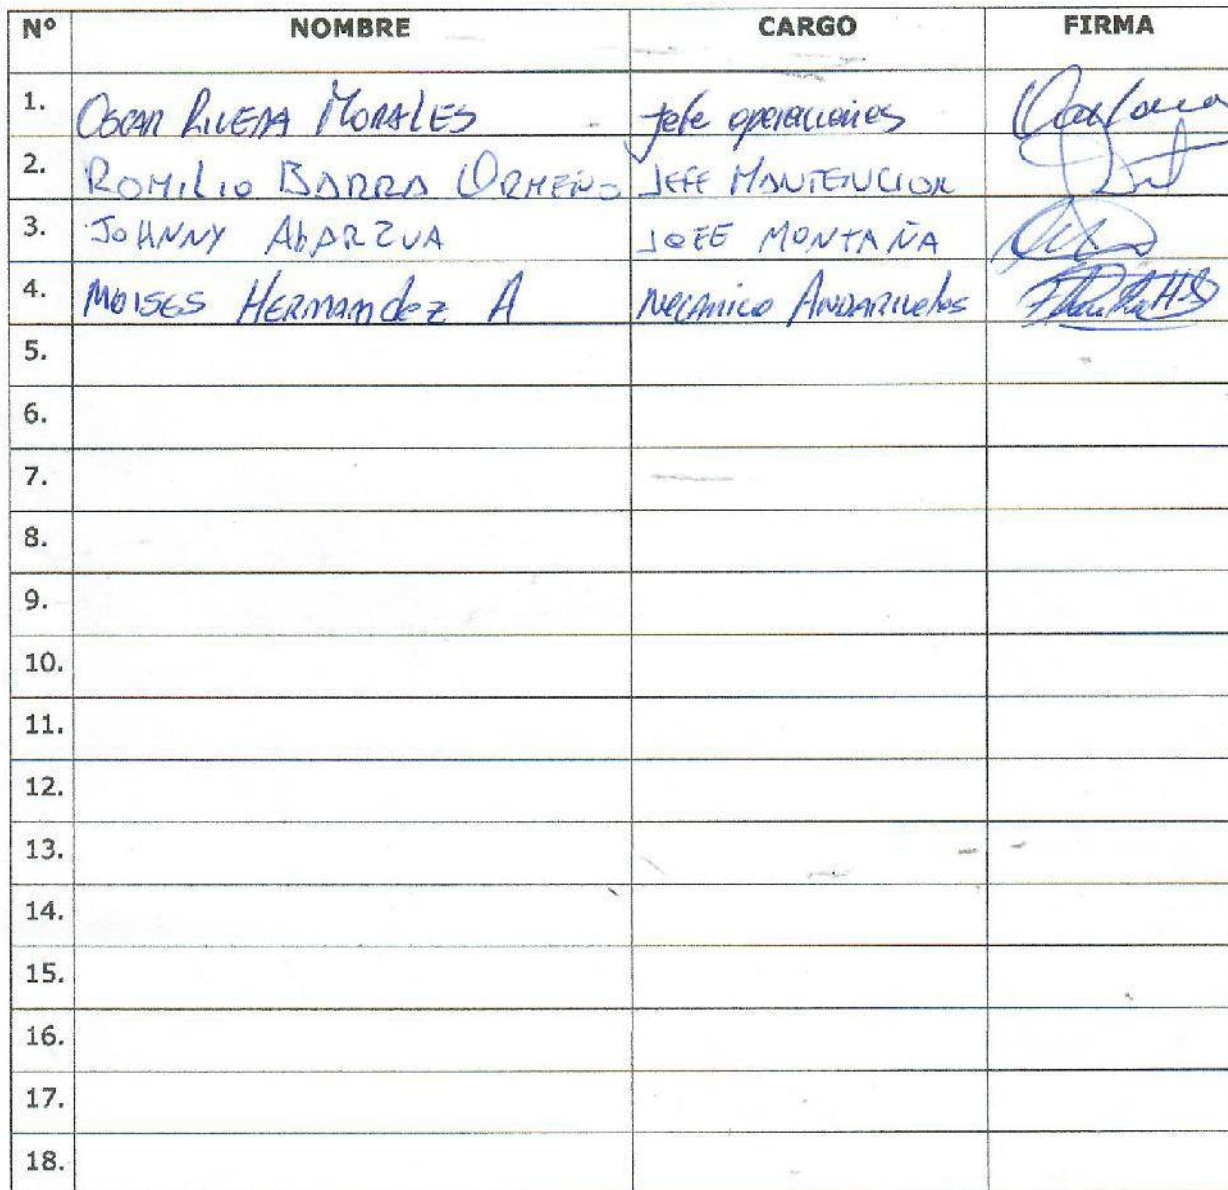 Nº NOMBRE CARGO FIRMA
1. OSCAR RIVERA MORALES Jefe operaciones
2. ROMILIO BARRA ORMEÑO JEFE MANTENCION
3. JOHNNY AbARZUA JEFE MONTAÑA
4. MOISES HERNANdEZ A MECANICO ANDARIVELES
5.
6.
7.
8.
9.
10.
11.
12.
13.
14.
15.
16.
17.
18.